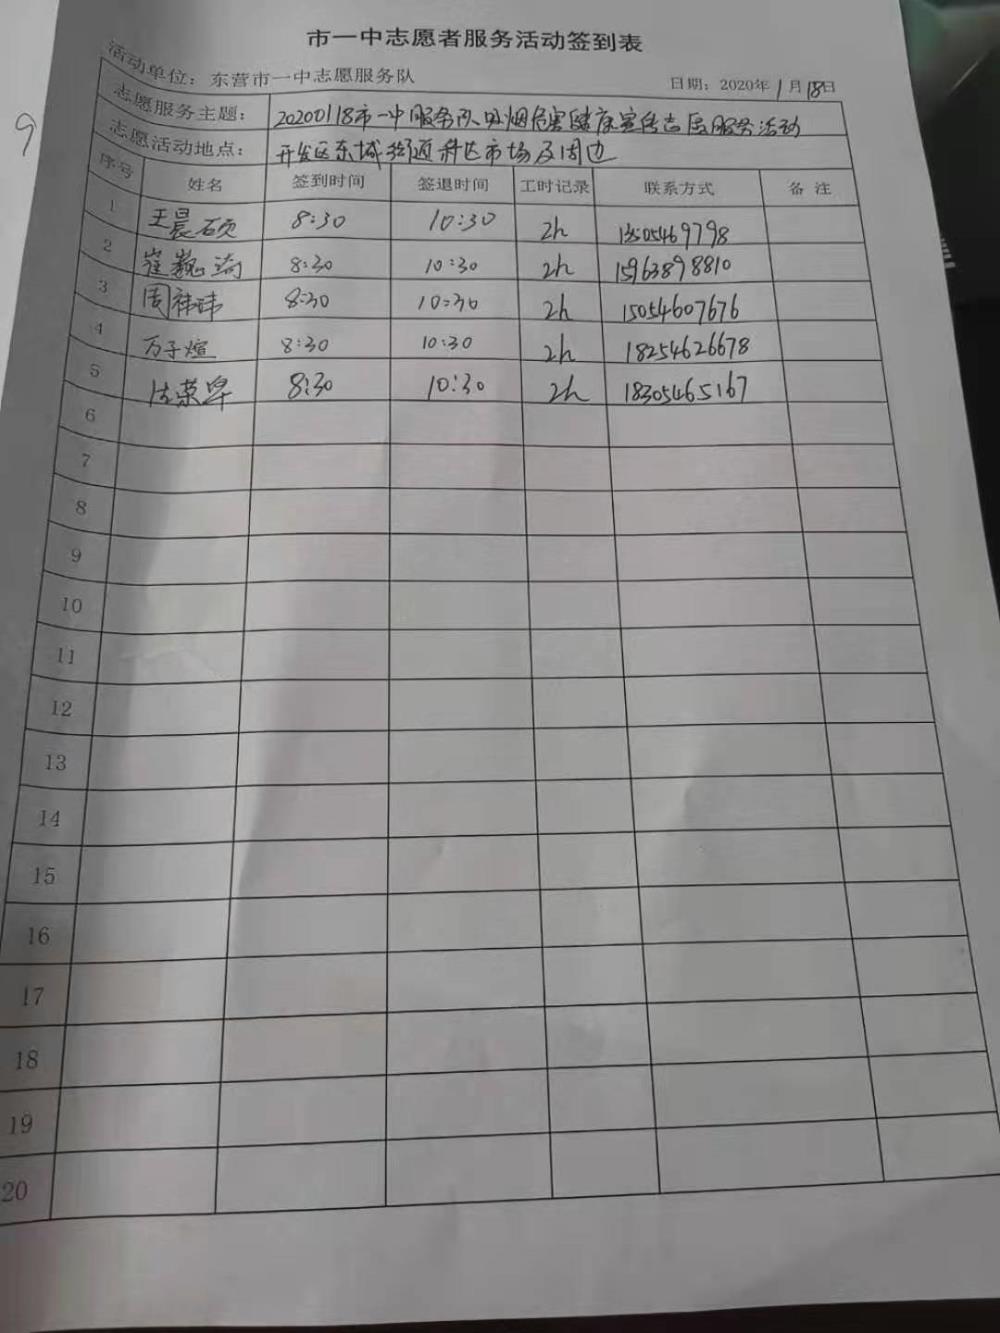 市一中志愿者服务活动签到表
活动单位：东营市一中志愿服务队 日期：2020年1月18日
志愿服务主题： 20200118市一中服务队吸烟危害健康宣传志愿服务活动
志愿活动地点： 开发区东城街道 市场及周边
序号 姓名 签到时间 签退时间 工时记录 联系方式 备注
1 王晨硕 8:30 10:30 2h 13505469798
2 崔巍 8:30 10:30 2h 15963898810
3 周祎玮 8:30 10:30 2h 15054607676
4 万子煊 8:30 10:30 2h 18254626678
5 8:30 10:30 2h 18305465167
6
7
8
9
10
11
12
13
14
15
16
17
18
19
20
9